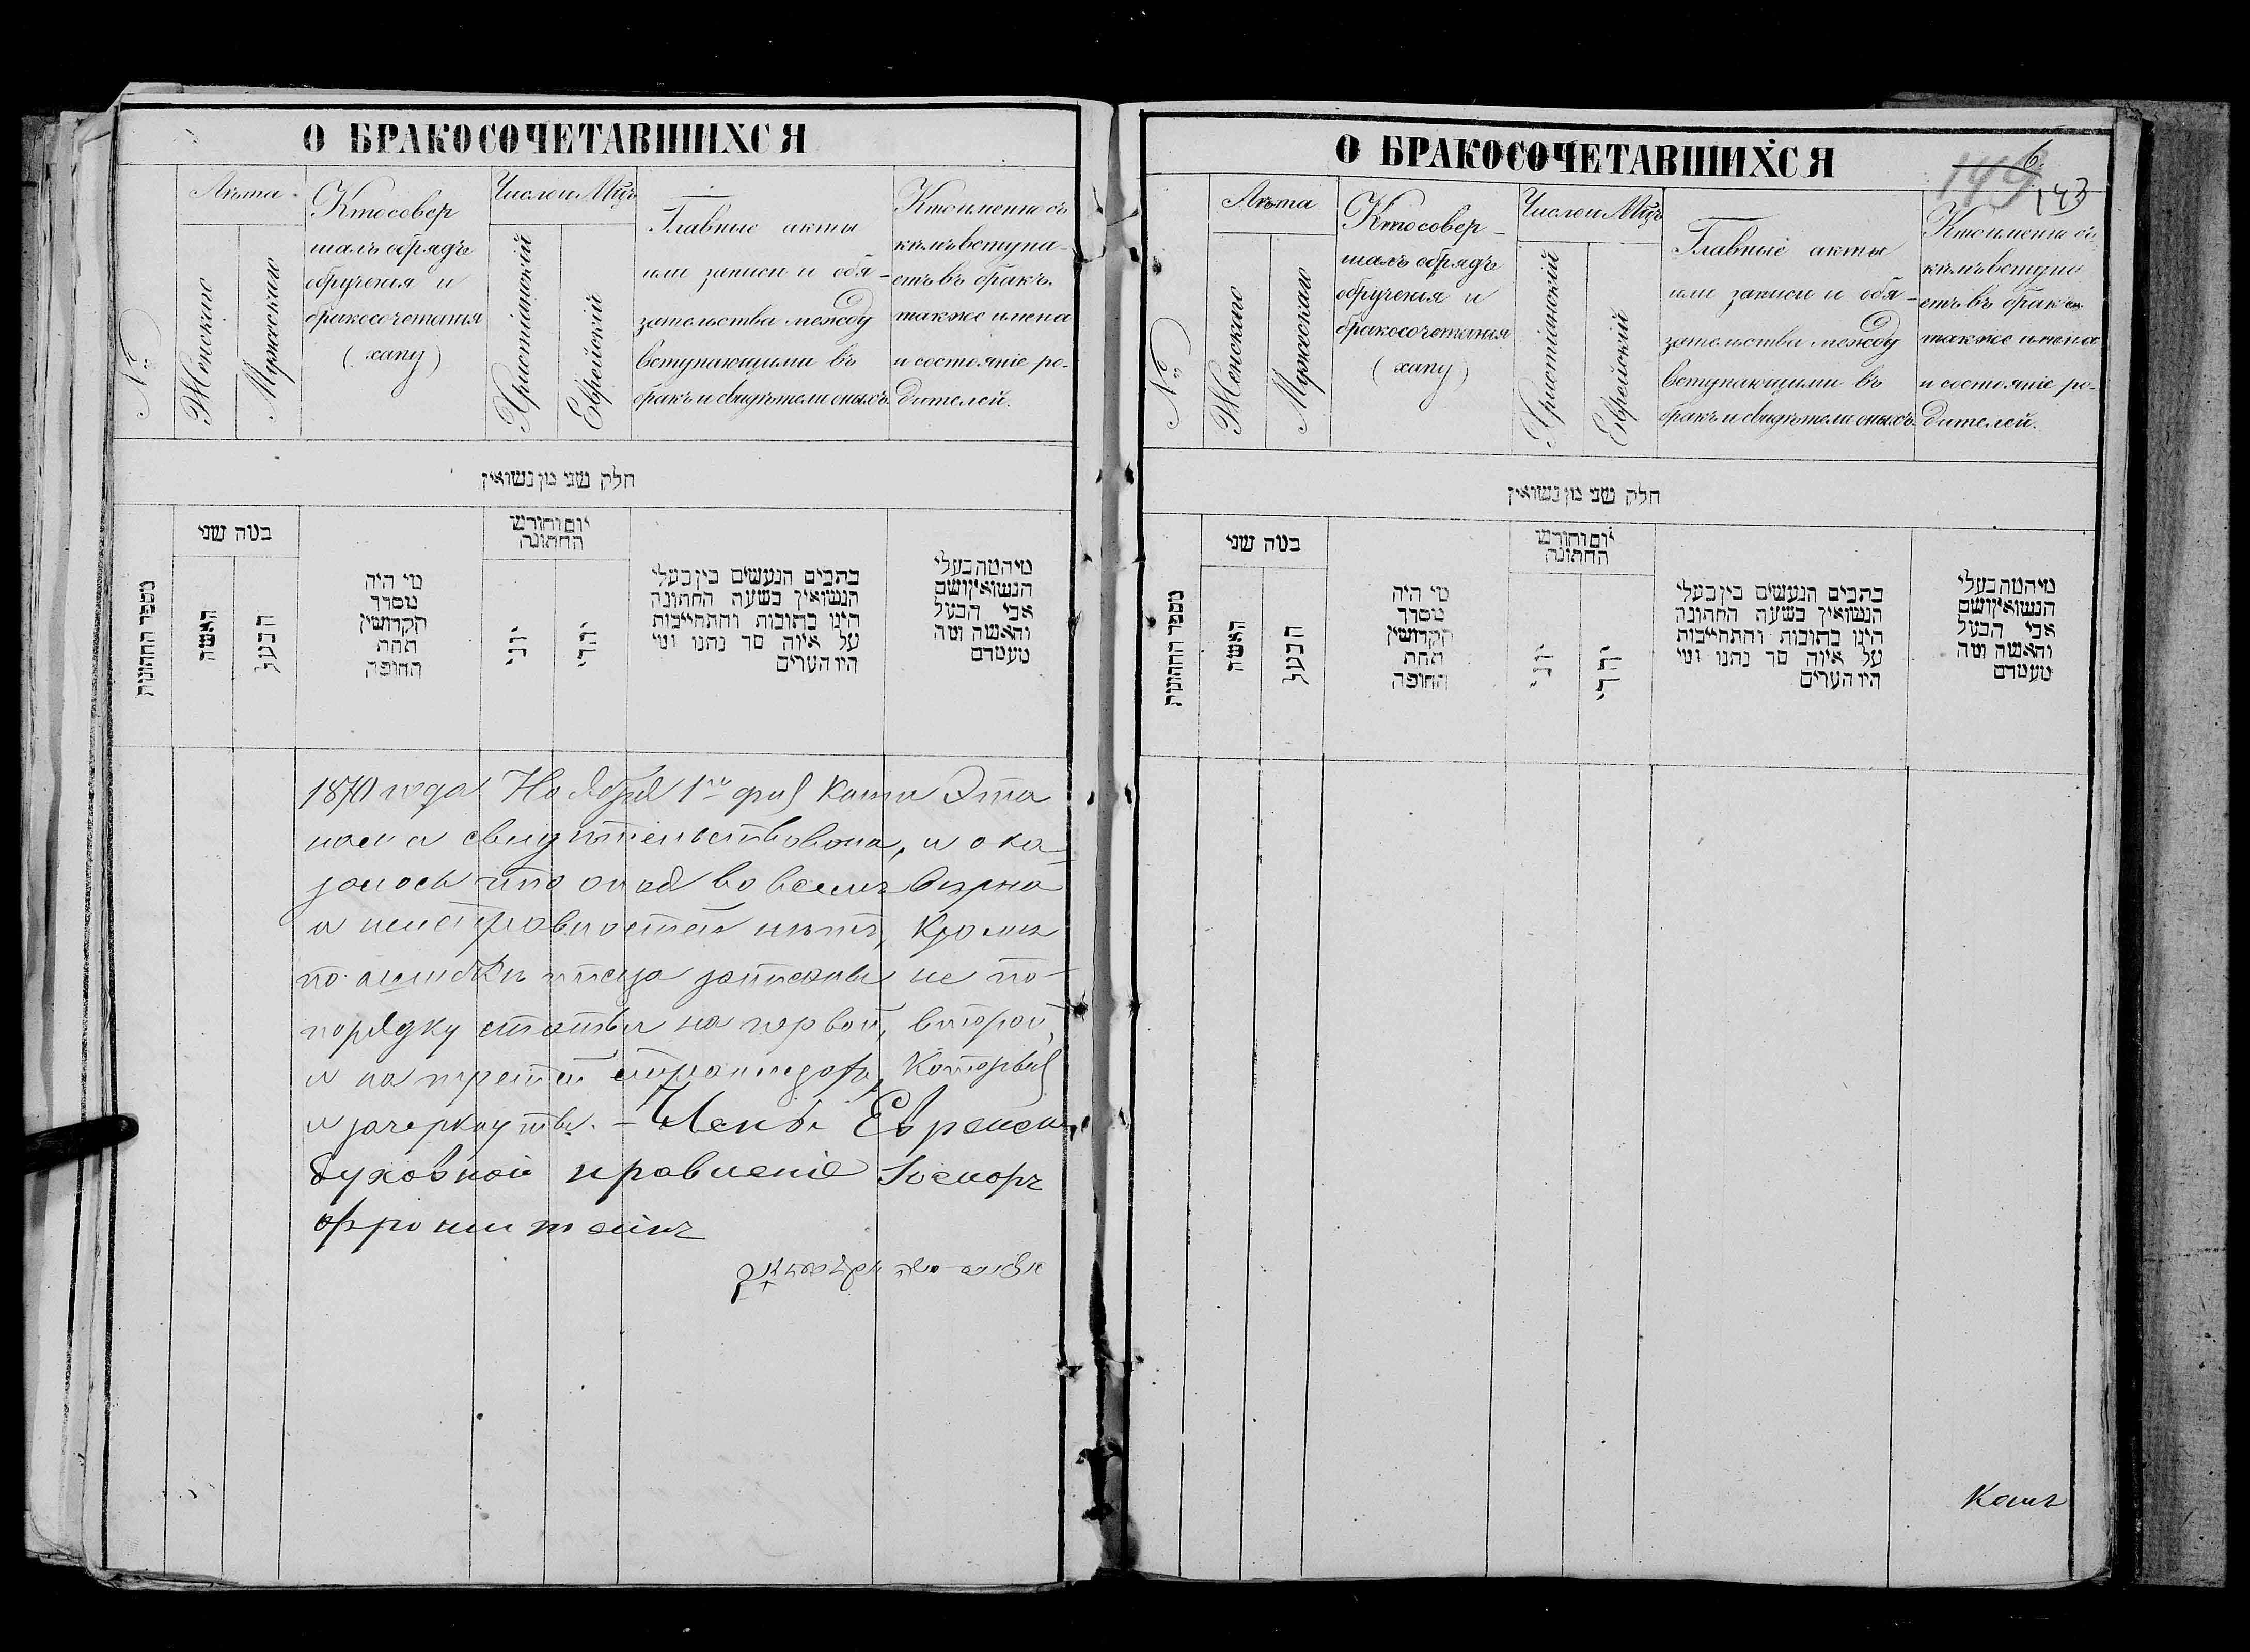 О БРАКОСОЧЕТАВШИХСЯ
№
Лѣта
Женскаго
Мужескаго
Кто совер
шалъ обрядъ
обрученія и
бракосочетанія
(хапу)
Число и Мцъ
Христіанскій
Еврейскій
Главные акты
или записи и обя-
зательства между
вступающими въ
бракъ и свидѣтели оныхъ.
Кто именно съ
кѣмъ вступа-
етъ въ бракъ.
также имена
и состояніе ро-
дителей.
חלק שני מן נשואין
מספר החתונות
במה שני
האשה
הבעל
מי היה
מסדר
הקדושין
תחת
החופה
יום וחודש
החתונה
יוני
יהודי
כתבים הנעשים בין בעלי
הנשואין בשעה החתונה
היינו כתובות והתחייבות
על איזה סך נתנו ומי
היו העדים
מי המה בעלי
הנשואין ושם
אבי הבעל
והאשה ומה
מעמדם
1870 года Ноября 1го дня Книга Эта
нами свидѣтельствована, и ока
залось что оная во всемъ вѣрна
и неисправностей нѣтъ, кромѣ
по ошибкѣ писца записаны не по-
порядку статьи на первой, второй,
и на третей страницахъ, которыя
и зачеркнуты. - Членъ Еврейск.
духовной правленіе
О БРАКОСОЧЕТАВШИХСЯ
6.
149
143
№
Лѣта
Женскаго
Мужескаго
Кто совер-
шалъ обрядъ
обрученія и
бракосочетанія
(хапу)
Число и Мцъ
Христіанскій
Еврейскій
Главные акты
или записи и обя-
зательства между
вступающими въ
бракъ и свидѣтели оныхъ.
Кто именно съ
кѣмъ вступа
етъ въ бракъ
также имена
и состояніе ро-
дителей.
חלק שני מן נשואין
מספר החתונות
במה שני
האשה
הבעל
מי היה
מסדר
הקדושין
תחת
החופה
יום וחודש
החתונה
יוני
יהודי
כתבים הנעשים בין בעלי
הנשואין בשעה החתונה
היינו כתובות והתחייבות
על איזה סך נתנו ומי
היו העדים
מי המה בעלי
הנשואין ושם
אבי הבעל
והאשה ומה
מעמדם